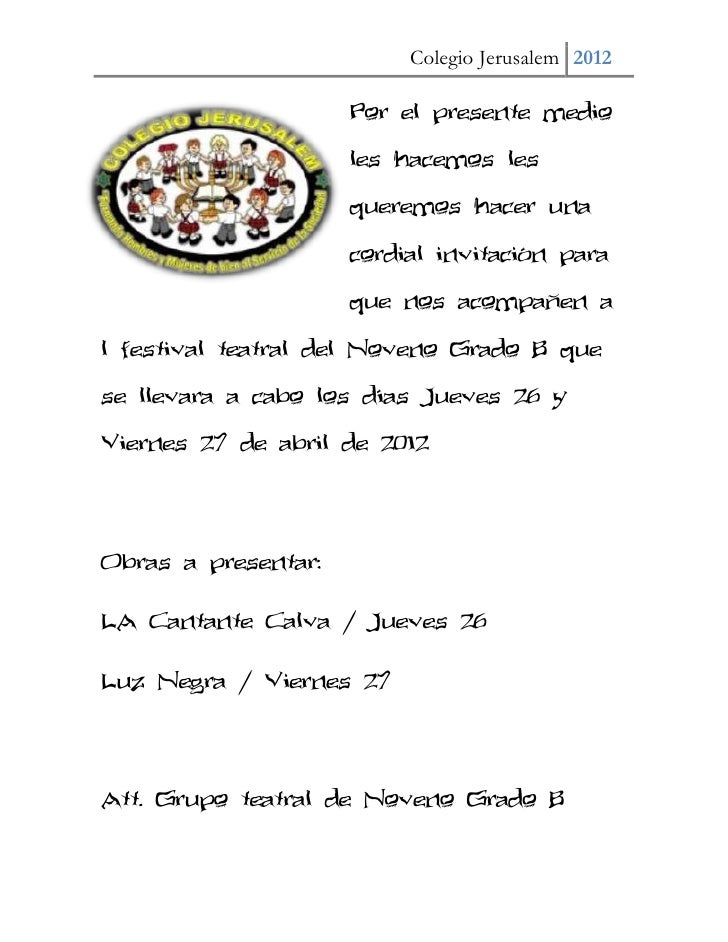 Colegio Jerusalem 2012
COLEGIO JERUSALEM
Formando Hombres y Mujeres de bien al Servicio de la Sociedad
Por el presente medio
les hacemos les
queremos hacer una
cordial invitación para
que nos acompañen a
l festival teatral del Noveno Grado B que
se llevara a cabo los dias Jueves 26 y
Viernes 27 de abril de 2012
Obras a presentar:
LA Cantante Calva / Jueves 26
Luz Negra / Viernes 27
Att. Grupo teatral de Noveno Grado B